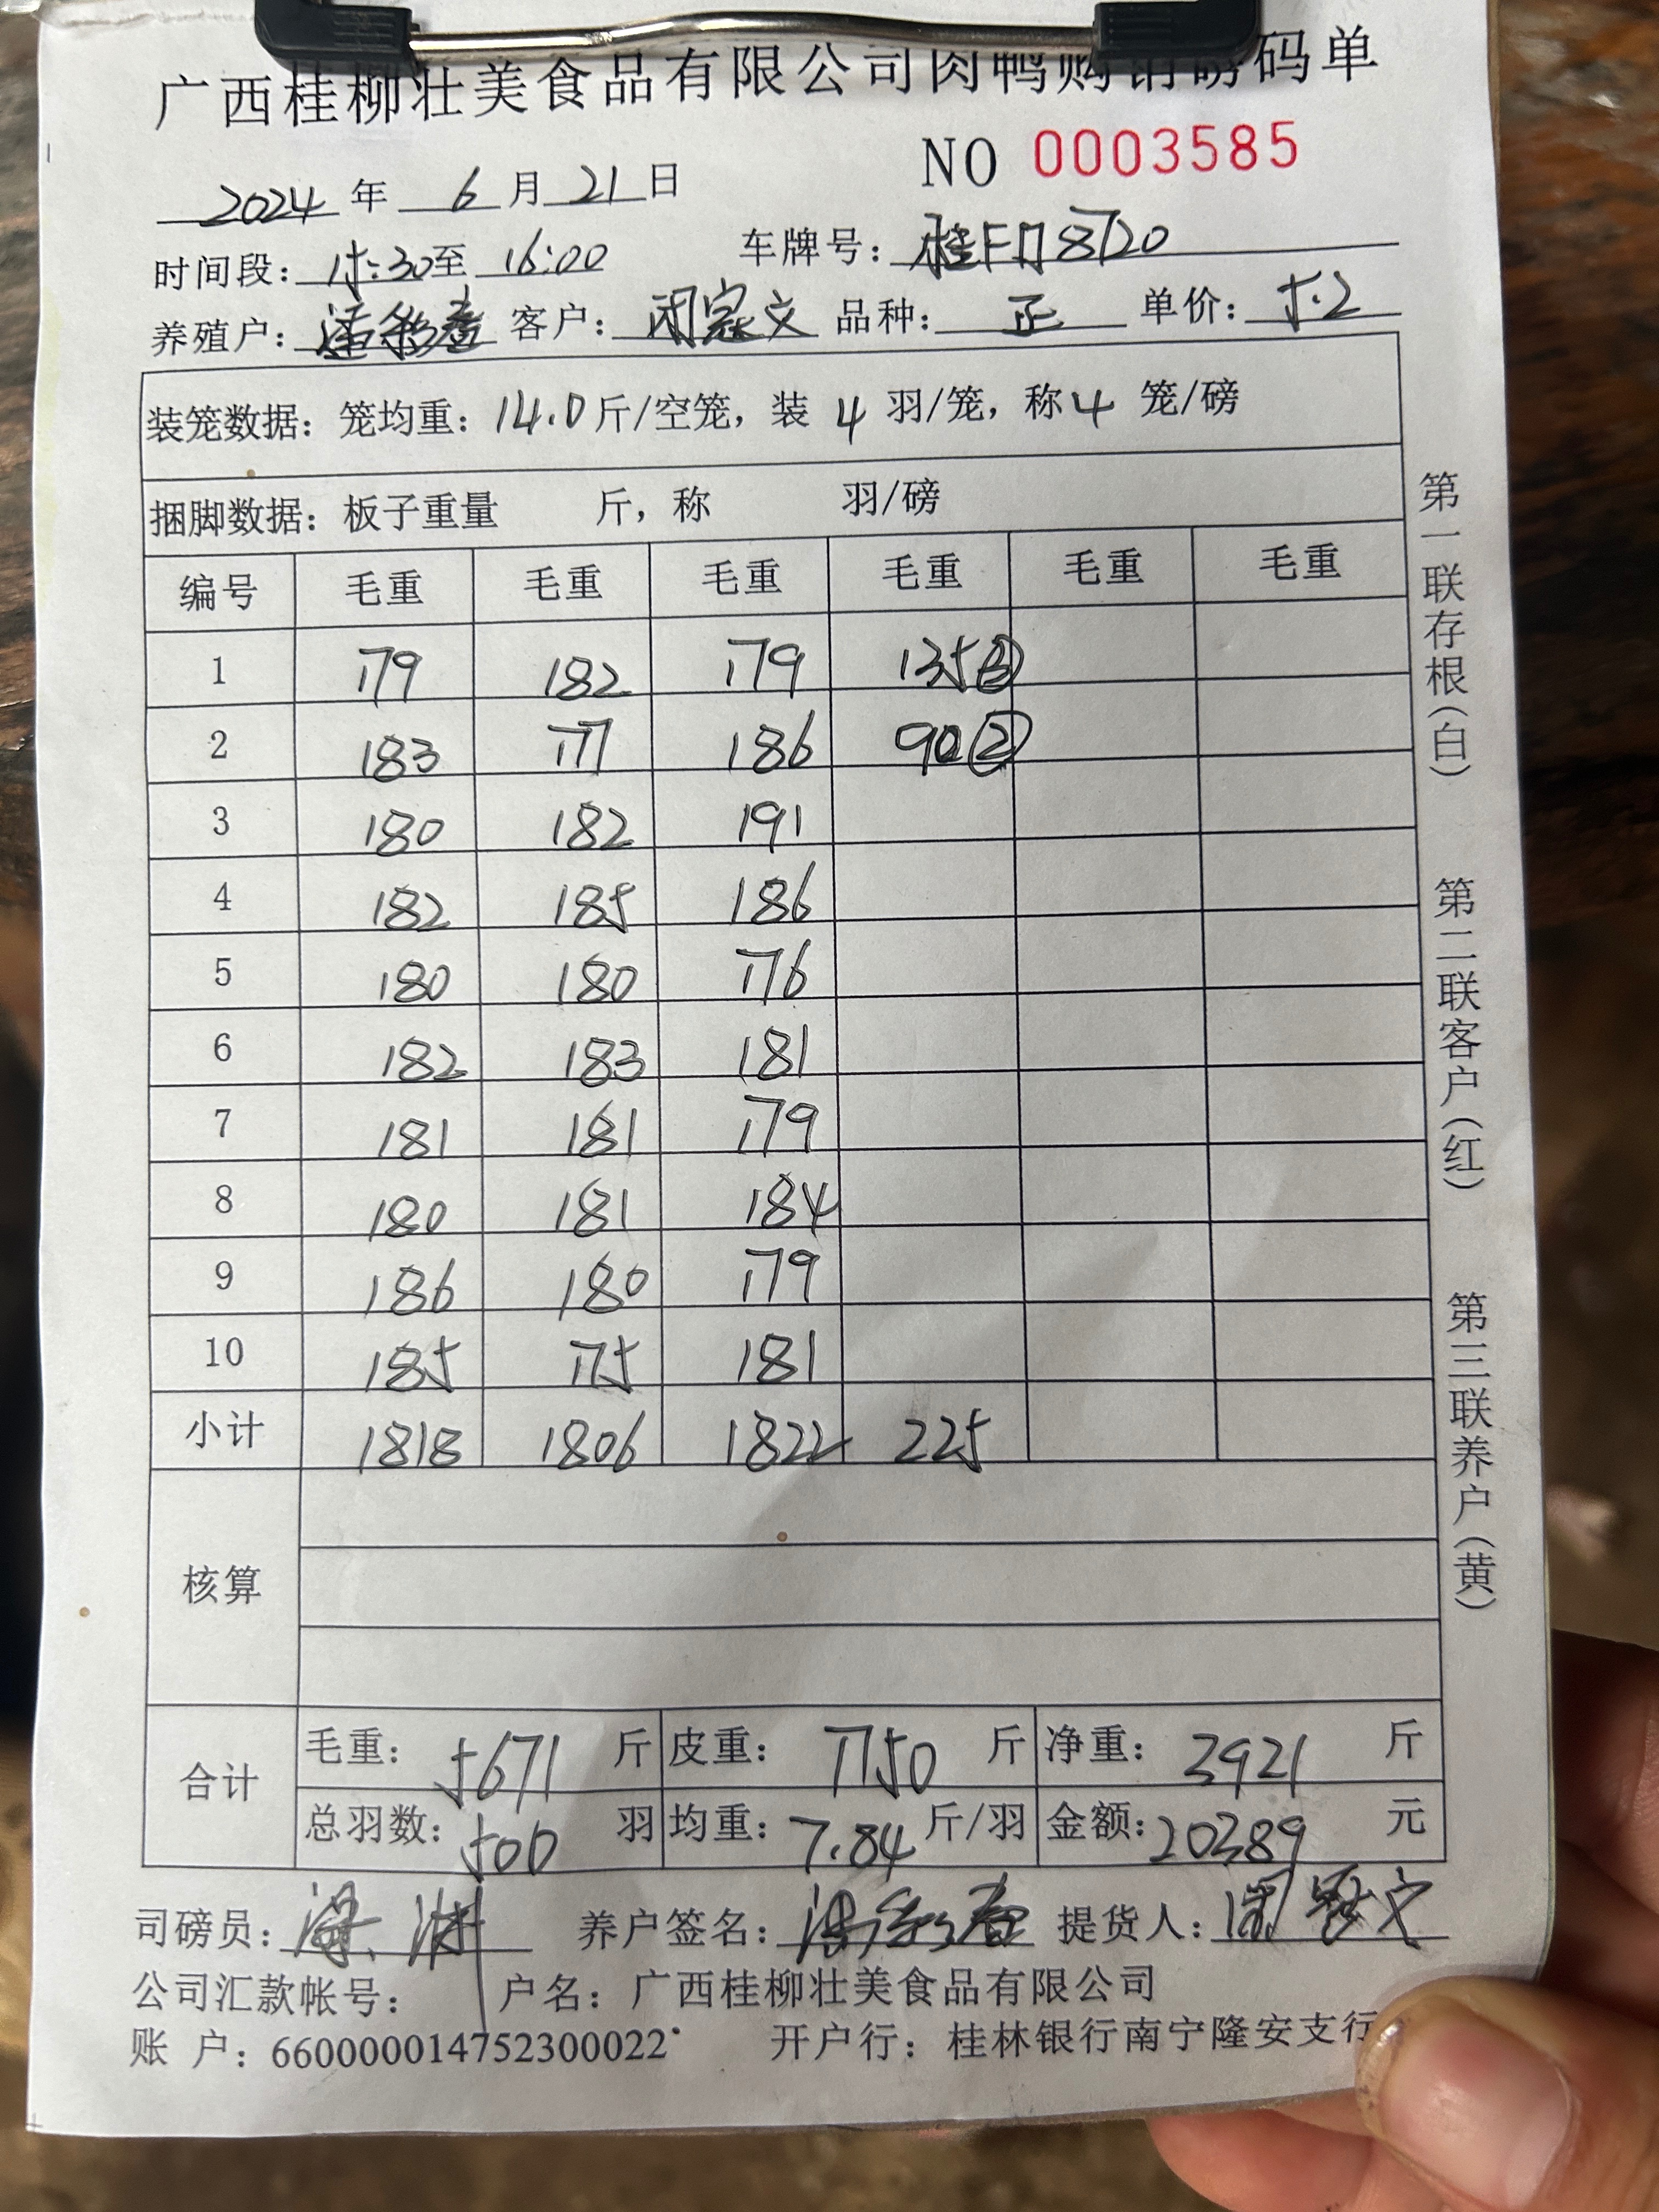 广西桂柳壮美食品有限公司肉鸭购销磅码单
NO 0003585
2024 年 6 月 21 日
时间段: 15:30 至 16:00 车牌号: 桂
养殖户: 客户: 闭冠文 品种: 正 单价: 5.2
装笼数据: 笼均重: 14.0 斤/空笼, 装 4 羽/笼, 称 4 笼/磅
捆脚数据: 板子重量 斤, 称 羽/磅
编号 毛重 毛重 毛重 毛重 毛重 毛重
1 179 182 179 135③
2 183 177 186 90②
3 180 182 191
4 182 185 186
5 180 180 176
6 182 183 181
7 181 181 179
8 180 181 184
9 186 180 179
10 185 175 181
小计 1818 1806 1822 225
核算
合计
毛重: 5671 斤 皮重: 1750 斤 净重: 3921 斤
总羽数: 500 羽 均重: 7.84 斤/羽 金额: 20389 元
司磅员: 养户签名: 提货人:
公司汇款帐号: 户名: 广西桂柳壮美食品有限公司
账 户: 660000014752300022 开户行: 桂林银行南宁隆安支行
第一联存根(白)
第二联客户(红)
第三联养户(黄)